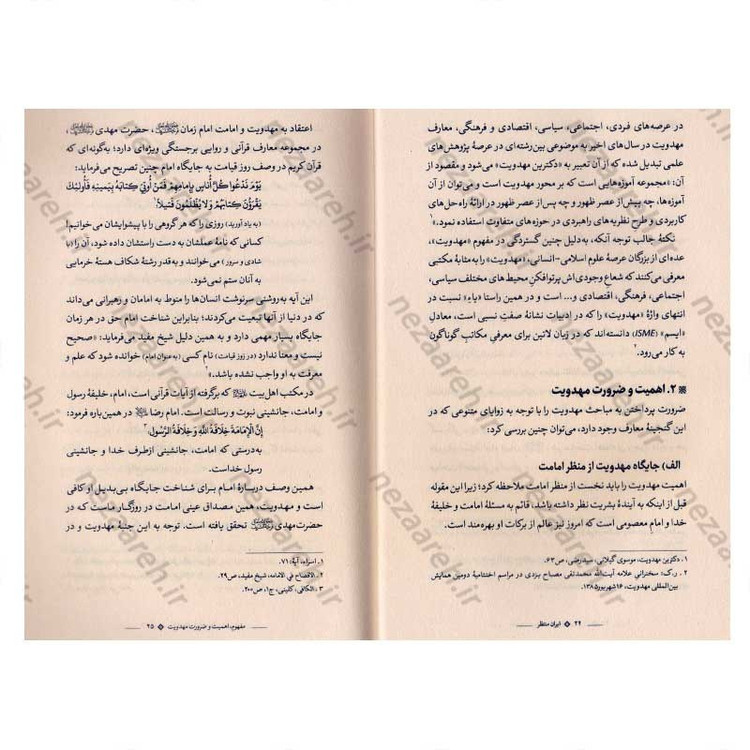 در عرصه‌های فردی، اجتماعی، سیاسی، اقتصادی و فرهنگی، معارف
مهدویت در سال‌های اخیر به موضوعی بین‌رشته‌ای در عرصهٔ پژوهش های
علمی تبدیل شده که از آن تعبیر به «دکترین مهدویت» می‌شود و مقصود از
آن: «مجموعه آموزه‌هایی است که بر محور مهدویت است و می‌توان از آن
آموزه‌ها، چه پیش از عصر ظهور و چه پس از عصر ظهور در ارائهٔ راه‌حل‌های
کاربردی و طرح نظریه‌های راهبردی در حوزه‌های متفاوت استفاده نمود.»۱
نکتهٔ جالب توجه آنکه، به‌دلیل چنین گستردگی در مفهوم «مهدویت»،
عده‌ای از بزرگان عرصهٔ علوم اسلامی-انسانی، «مهدویت» را به‌مثابهٔ مکتبی
معرفی می‌کنند که شعاع وجودی‌اش پرتوافکنِ محیط‌های مختلف سیاسی،
اجتماعی، فرهنگی، اقتصادی و... است و در همین راستا «یاء» نسبت در
انتهای واژهٔ «مهدویت» را که در ادبیات نشانهٔ صفتِ نسبی است، معادلِ
«ایسم» (ISME) دانسته‌اند که در زبان لاتین برای معرفی مکاتب گوناگون
به کار می‌رود.۲
۲. اهمیت و ضرورت مهدویت
ضرورت پرداختن به مباحث مهدویت را با توجه به زوایای متنوعی که در
این گنجینهٔ معارف وجود دارد، می‌توان چنین بررسی کرد:
الف) جایگاه مهدویت از منظر امامت
اهمیت مهدویت را باید نخست از منظر امامت ملاحظه کرد؛ زیرا این مقوله
قبل از اینکه به آیندهٔ بشریت نظر داشته باشد، قائم به مسئلهٔ امامت و خلیفهٔ
خدا و امام معصومی است که امروز نیز عالم از برکات او بهره‌مند است.
۱. دکترین مهدویت، موسوی گیلانی، سیدرضی، ص۶۳.
۲. ر.ک: سخنرانی علامه آیت‌الله محمدتقی مصباح یزدی در مراسم اختتامیهٔ دومین همایش
بین‌المللی مهدویت، ۱۶شهریور۱۳۸۵.
۲۴ ایران منتظر
اعتقاد به مهدویت و امامت امام زمان، حضرت مهدی،
در مجموعه معارف قرآنی و روایی برجستگی ویژه‌ای دارد؛ به‌گونه‌ای که
قرآن کریم در وصف روز قیامت به جایگاه امام چنین تصریح می‌فرماید:
یَوْمَ نَدْعُوا کُلَّ أُنَاسٍ بِإِمَامِهِمْ فَمَنْ أُوتِیَ کِتَابَهُ بِیَمِینِهِ فَأُولَئِکَ
یَقْرَؤُنَ کِتَابَهُمْ وَلَا یُظْلَمُونَ فَتِیلًا؛۱
(به یاد آورید) روزی را که هر گروهی را با پیشوایشان می‌خوانیم!
کسانی که نامهٔ عملشان به دست راستشان داده شود، آن را (با
شادی و سرور) می‌خوانند و به‌قدر رشتهٔ شکاف هستهٔ خرمایی
به آنان ستم نمی‌شود.
این آیه به‌روشنی سرنوشت انسان‌ها را منوط به امامان و رهبرانی می‌داند
که در دنیا از آنها تبعیت می‌کردند؛ بنابراین شناخت امام حق در هر زمان
جایگاه بسیار مهمی دارد و به همین دلیل شیخ مفید می‌فرماید: «صحیح
نیست و معنا ندارد (در روز قیامت) نام کسی (به عنوان امام) خوانده شود که علم و
معرفت به او واجب نشده باشد.»۲
در مکتب اهل‌بیت که برگرفته از آیات قرآنی است، امام، خلیفهٔ رسول
و امامت، جانشینی نبوت و رسالت است. امام رضا در همین‌باره فرمود:
إِنَّ الْإِمَامَةَ خِلَافَةُ اللهِ وَ خِلَافَةُ الرَّسُولِ؛۳
به‌درستی که امامت، جانشینی ازطرف خدا و جانشینی
رسول خداست.
همین وصف دربارهٔ امام برای شناخت جایگاه بی‌بدیل او کافی
است و مهدویت، همین مصداق عینی امامت در روزگار ماست که در
حضرت‌مهدی تحقق یافته است. توجه به این جنبهٔ مهدویت و در
۱. اسراء، آیهٔ: ۷۱.
۲. الافصاح في الامامه، شیخ مفید، ص۲۹.
۳. الکافی، کلینی، ج۱، ص۲۰۰.
مفهوم، اهمیت و ضرورت مهدویت ۲۵
nezaareh.ir